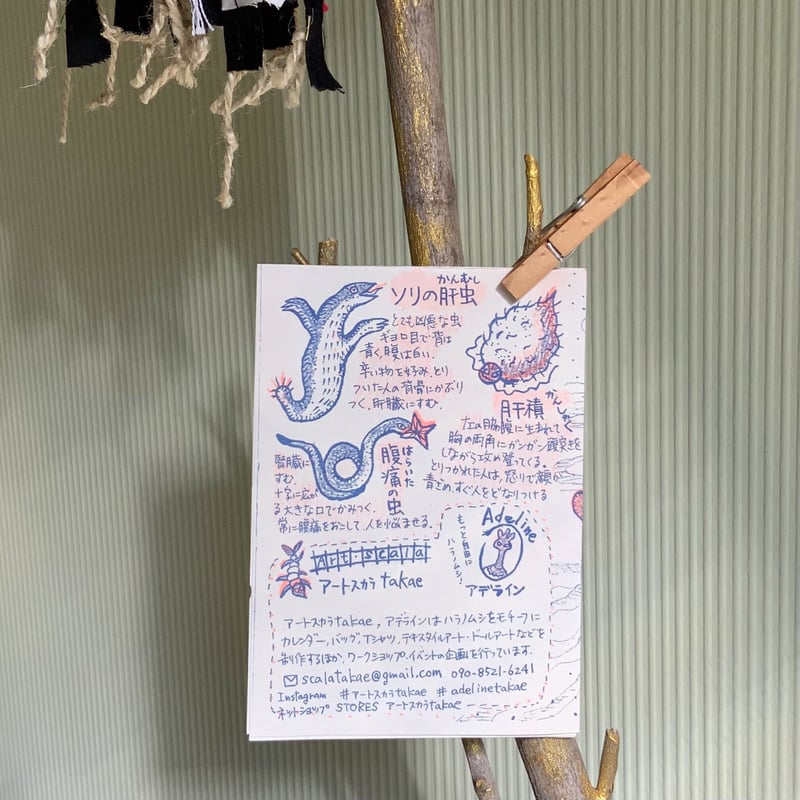 かんむし
ソリの肝虫
とても凶悪な虫
ギョロ目で背は
青く、腹は白い。
辛い物を好み、とり
ついた人の背骨にかぶり
つく。肝臓にすむ。
かんしゃく
肝積
左の脇腹に生まれて
胸の両角にガンガン頭突きを
しながら攻め登ってくる。
とりつかれた人は、怒りで顔が
青ざめ、すぐ人をどなりつける
はらいた
腹痛の虫
腎臓に
すむ。
十字に広が
る大きな口でかみつく。
常に腹痛をおこして、人を悩ませる。
Art・scala
アートスカラ takae
もっと自由に
ハラノムシ!
Adeline
アデライン
アートスカラtakae, アデラインは ハラノムシをモチーフに
カレンダー、バッグ、Tシャツ、テキスタイルアート・ドールアートなどを
制作するほか、ワークショップ、イベントの企画を行っています。
scalatakae@gmail.com 090-8521-6241
Instagram #アートスカラtakae #adelinetakae
ネットショップ STORES アートスカラtakae